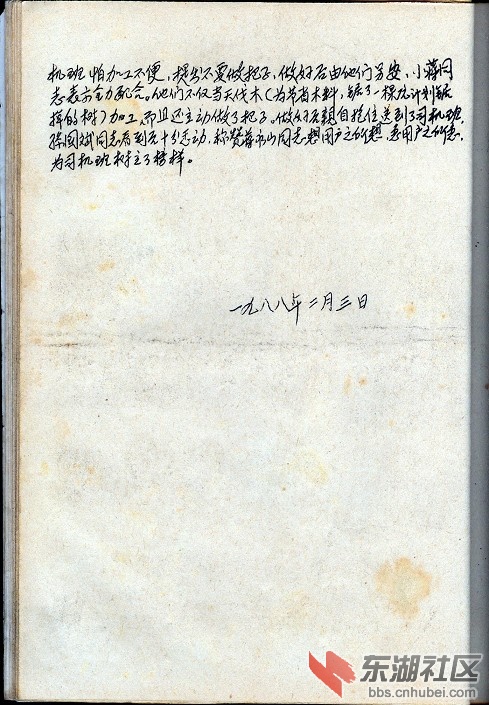 机班怕加工不便，提出不要做把子，做好后由他们另安，小蒋同
志表示全力配合。他们不仅当天伐木（为节省木料，锯了一棵计划锯
掉的树）加工，而且还主动做了把子，做好后亲自拖住送到了司机班，
国斌同志看到后十分感动，称赞蒋永山同志想用户之所想，急用户之所急，
为司机班树立了榜样。
一九八八年二月三日
东湖社区
bbs.cnhubei.com